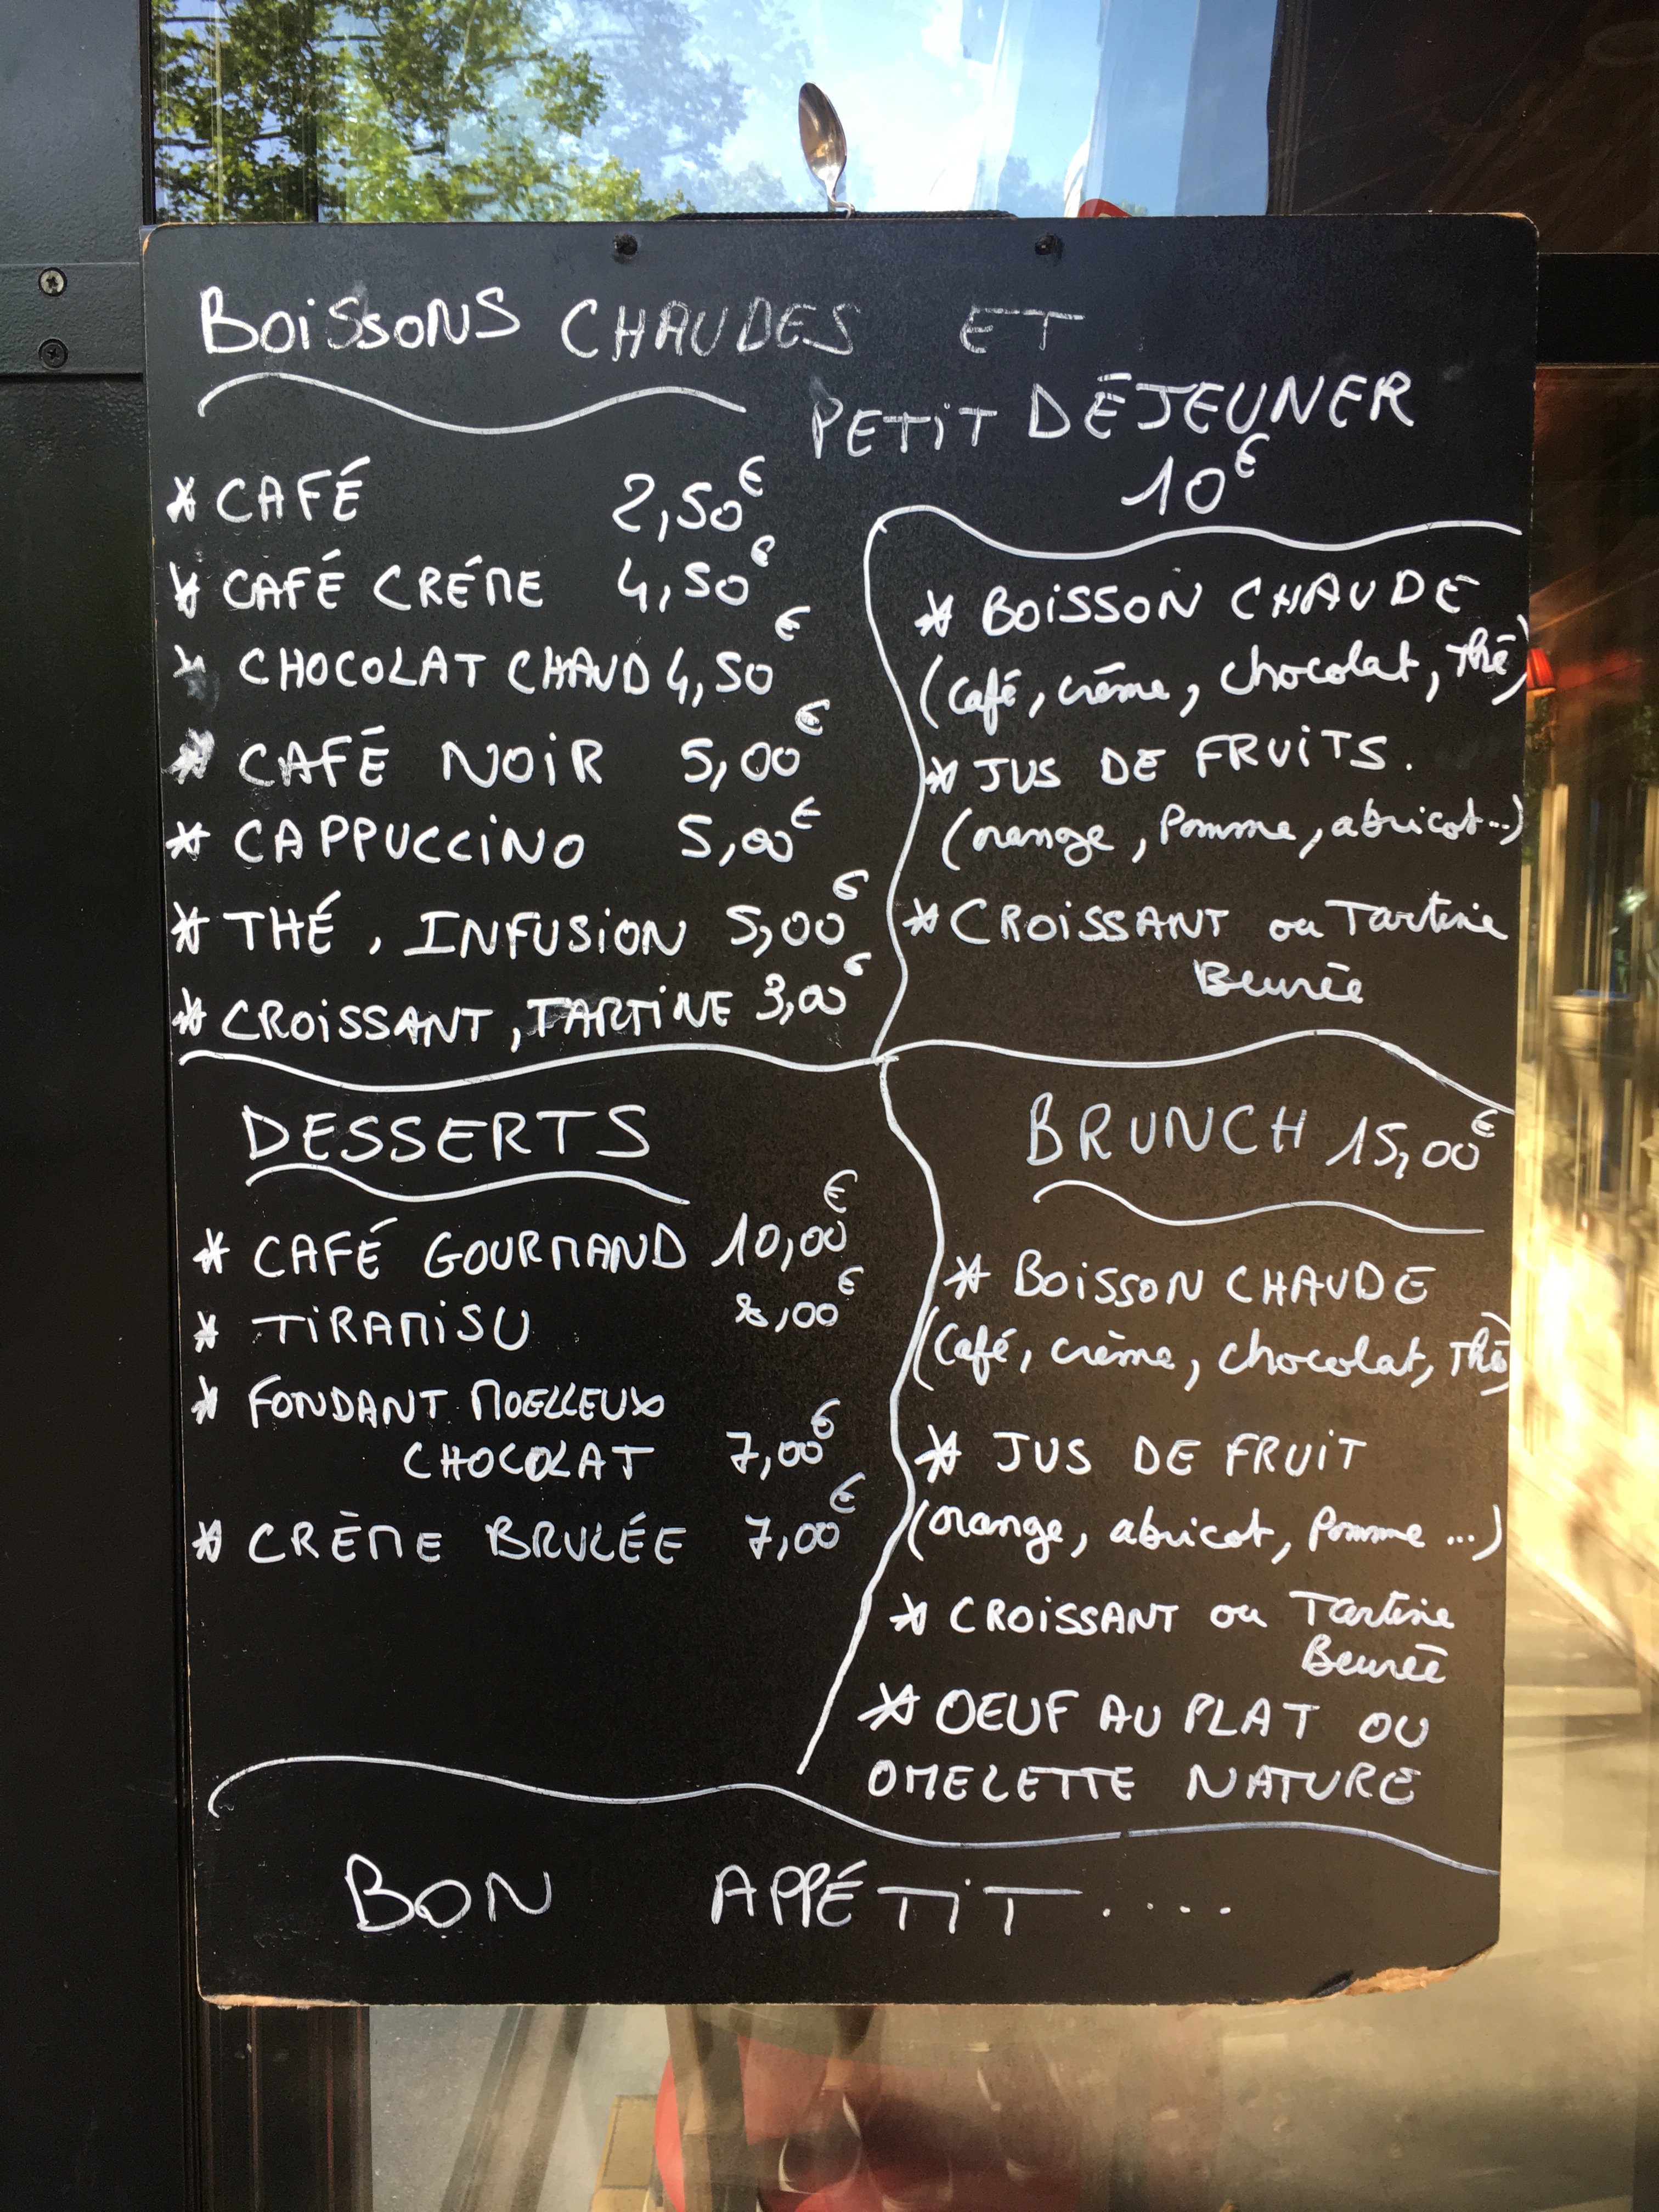 BOISSONS CHAUDES ET
PETIT DÉJEUNER
10€
* CAFÉ 2,50€
* CAFÉ CRÉME 4,50€
* CHOCOLAT CHAUD 4,50€
* CAFÉ NOIR 5,00€
* CAPPUCCINO 5,00€
* THÉ, INFUSION 5,00€
* CROISSANT, TARTINE 3,00€
* BOISSON CHAUDE
(Café, crème, chocolat, Thé)
* JUS DE FRUITS.
(orange, Pomme, abricot...)
* CROISSANT ou Tartine
Beurée
DESSERTS
* CAFÉ GOURMAND 10,00€
* TIRAMISU 8,00€
* FONDANT MOELLEUX
CHOCOLAT 7,00€
* CRÈME BRULÉE 7,00€
BRUNCH 15,00€
* BOISSON CHAUDE
(Café, crème, chocolat, Thé)
* JUS DE FRUIT
(orange, abricot, Pomme ...)
* CROISSANT ou Tartine
Beurée
* OEUF AU PLAT OU
OMELETTE NATURE
BON APPÉTIT....